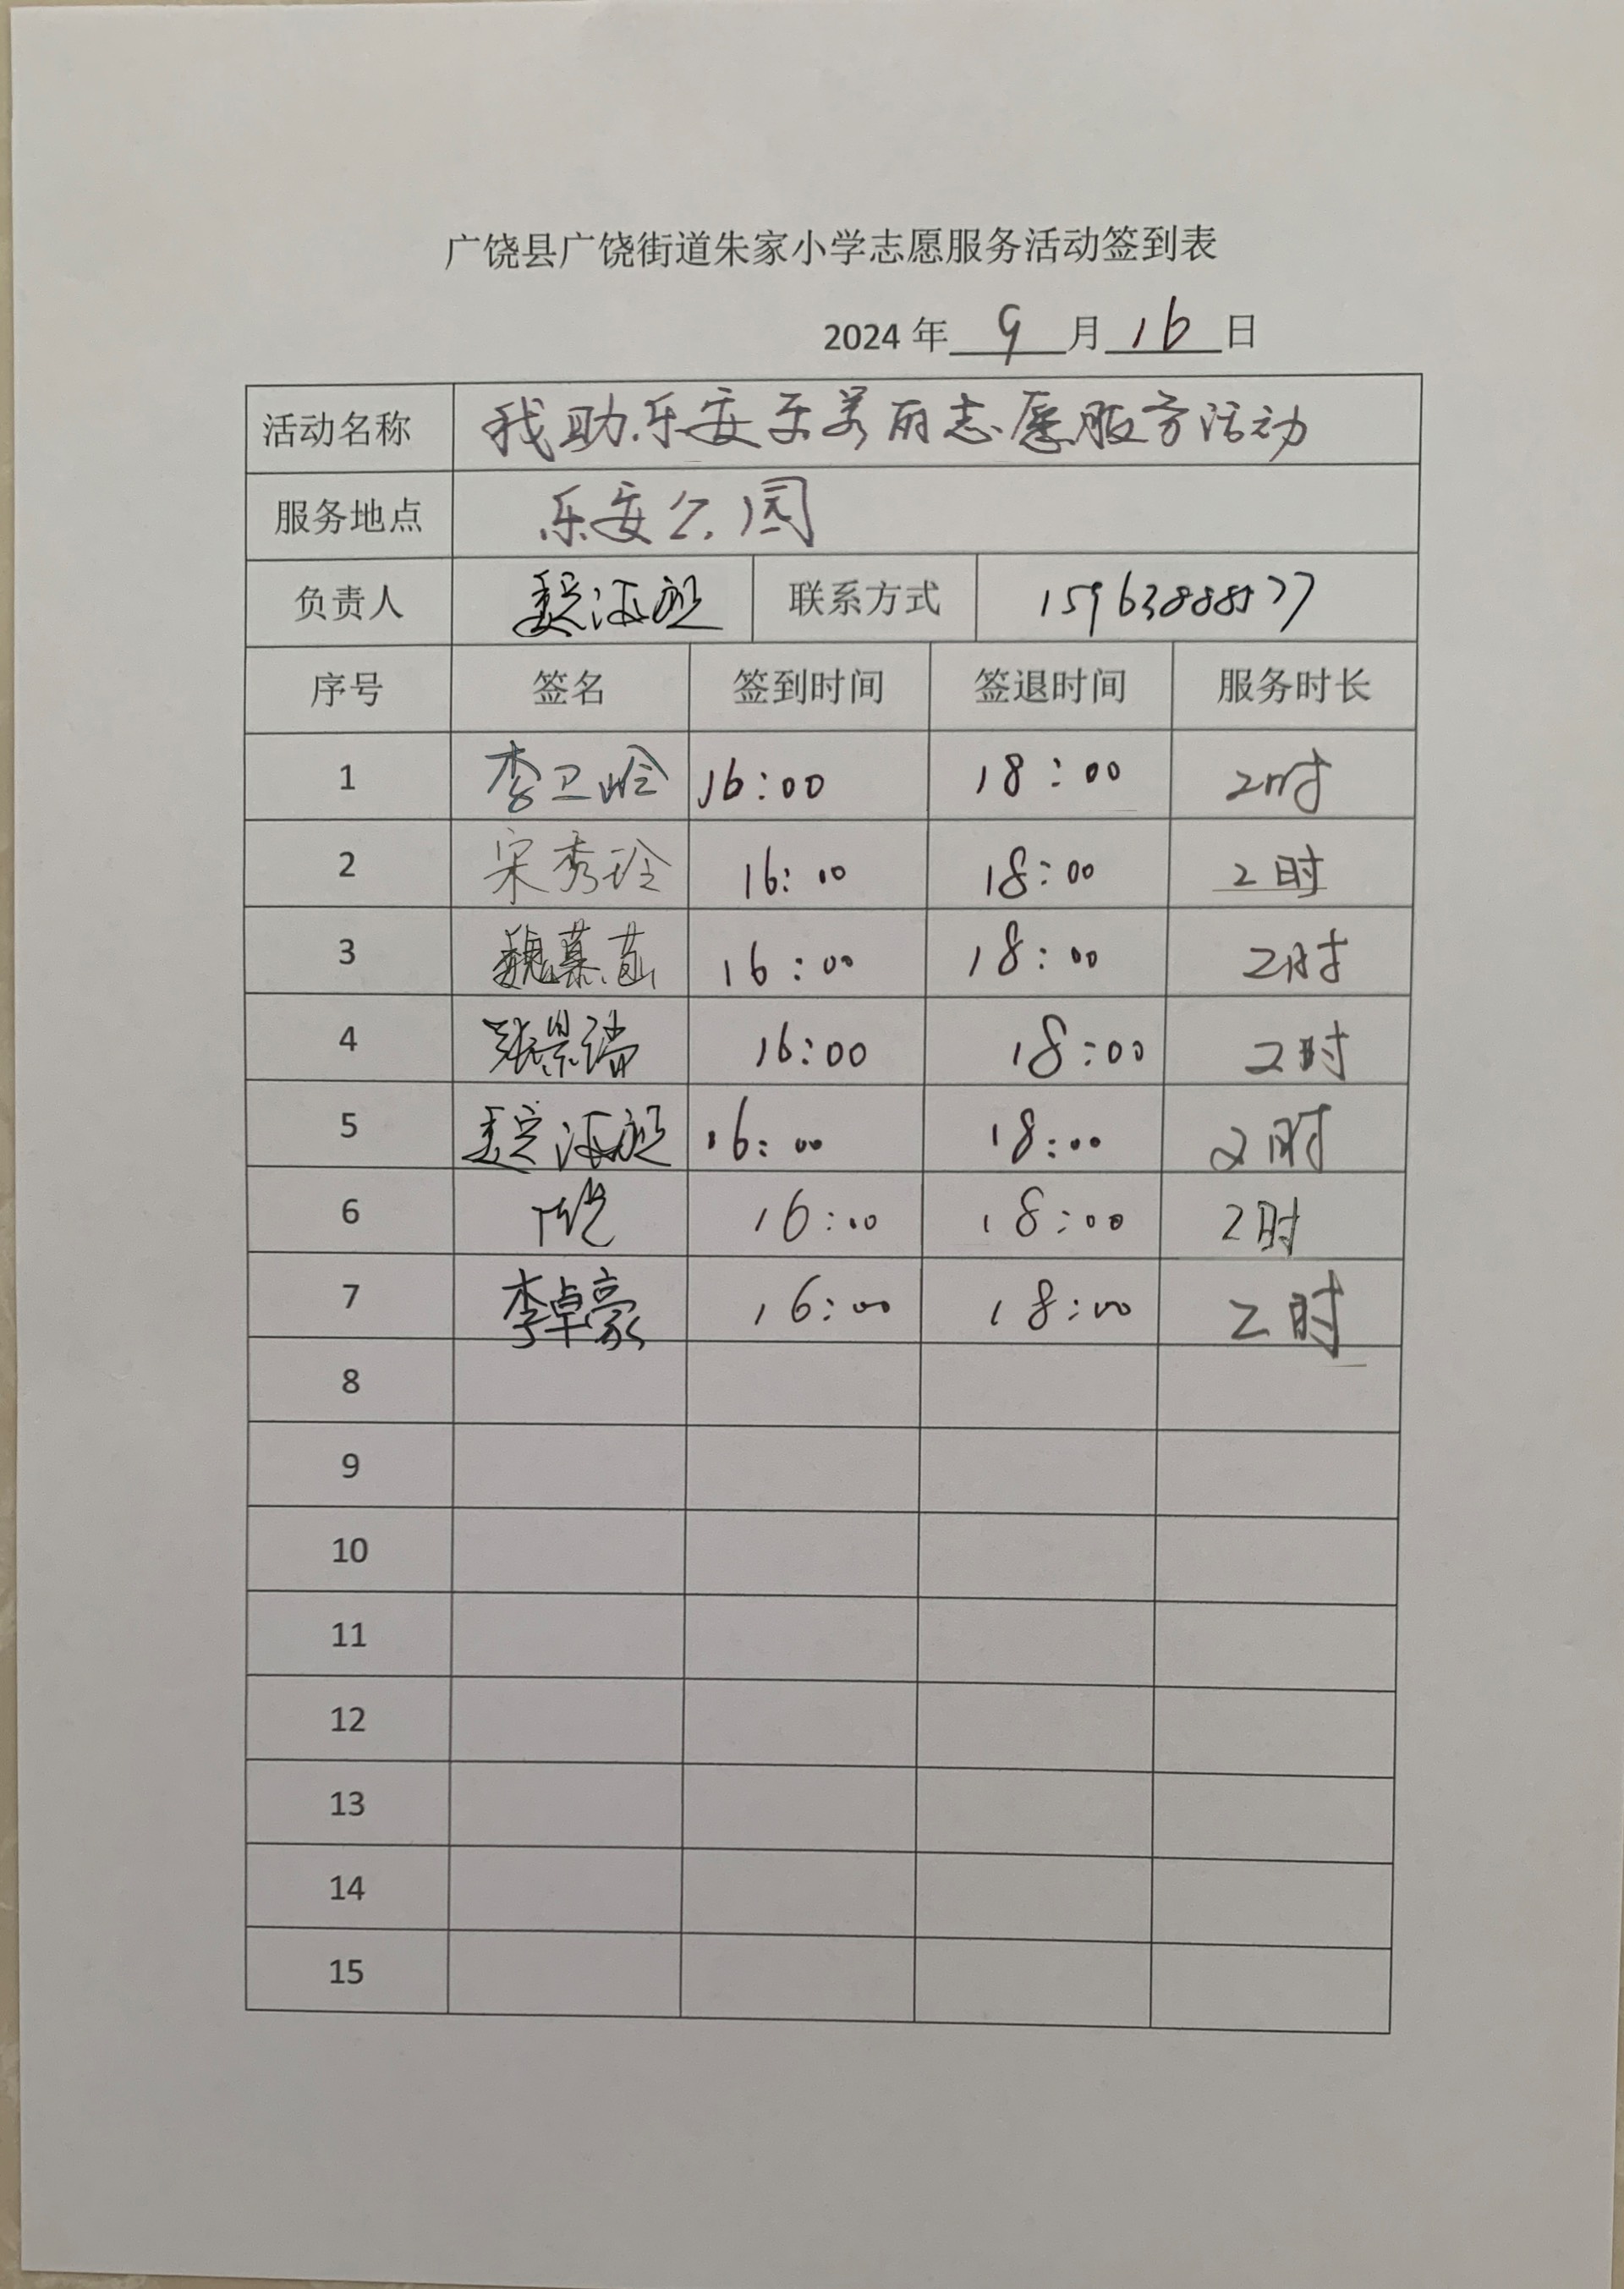 广饶县广饶街道朱家小学志愿服务活动签到表
2024 年 9 月 16 日
活动名称 我助乐安 美丽志愿服务活动
服务地点 乐安公园
负责人 魏海 联系方式
序号 签名 签到时间 签退时间 服务时长
1 李卫 16:00 18:00 2时
2 宋秀玲 16:00 18:00 2时
3 魏慕 16:00 18:00 2时
4 张景瑞 16:00 18:00 2时
5 魏海 16:00 18:00 2时
6 16:00 18:00 2时
7 李卓豪 16:00 18:00 2时
8
9
10
11
12
13
14
15